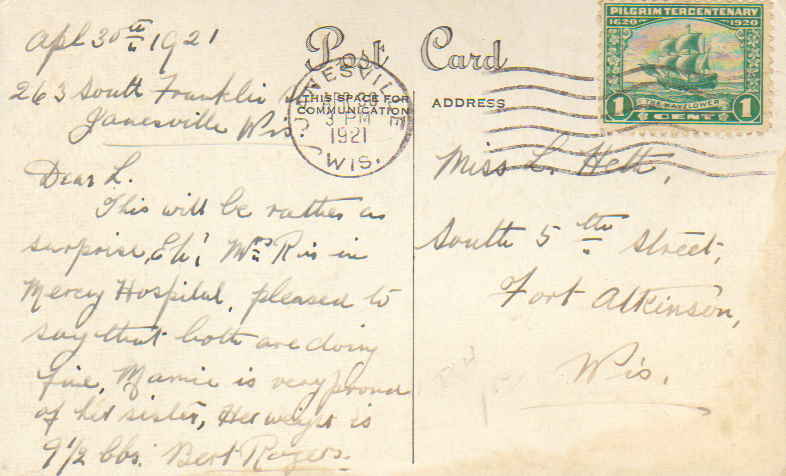 Apl 30th 1921
263 South Franklin St
Janesville Wis.
Dear L.
This will be rather a
surprise, Eh! Mrs R is in
Mercy Hospital, pleased to
say that both are doing
fine, Mamie is very proud
of her sister, Her weight is
9 1/2 lbs. Bert Rogers.
Post Card
THIS SPACE FOR
COMMUNICATION
ADDRESS
JANESVILLE
3 PM
1921
WIS.
PILGRIM TERCENTENARY
1620 1920
THE MAYFLOWER
1 CENT 1
Miss L. Heth,
South 5th Street,
Fort Atkinson,
Wis.